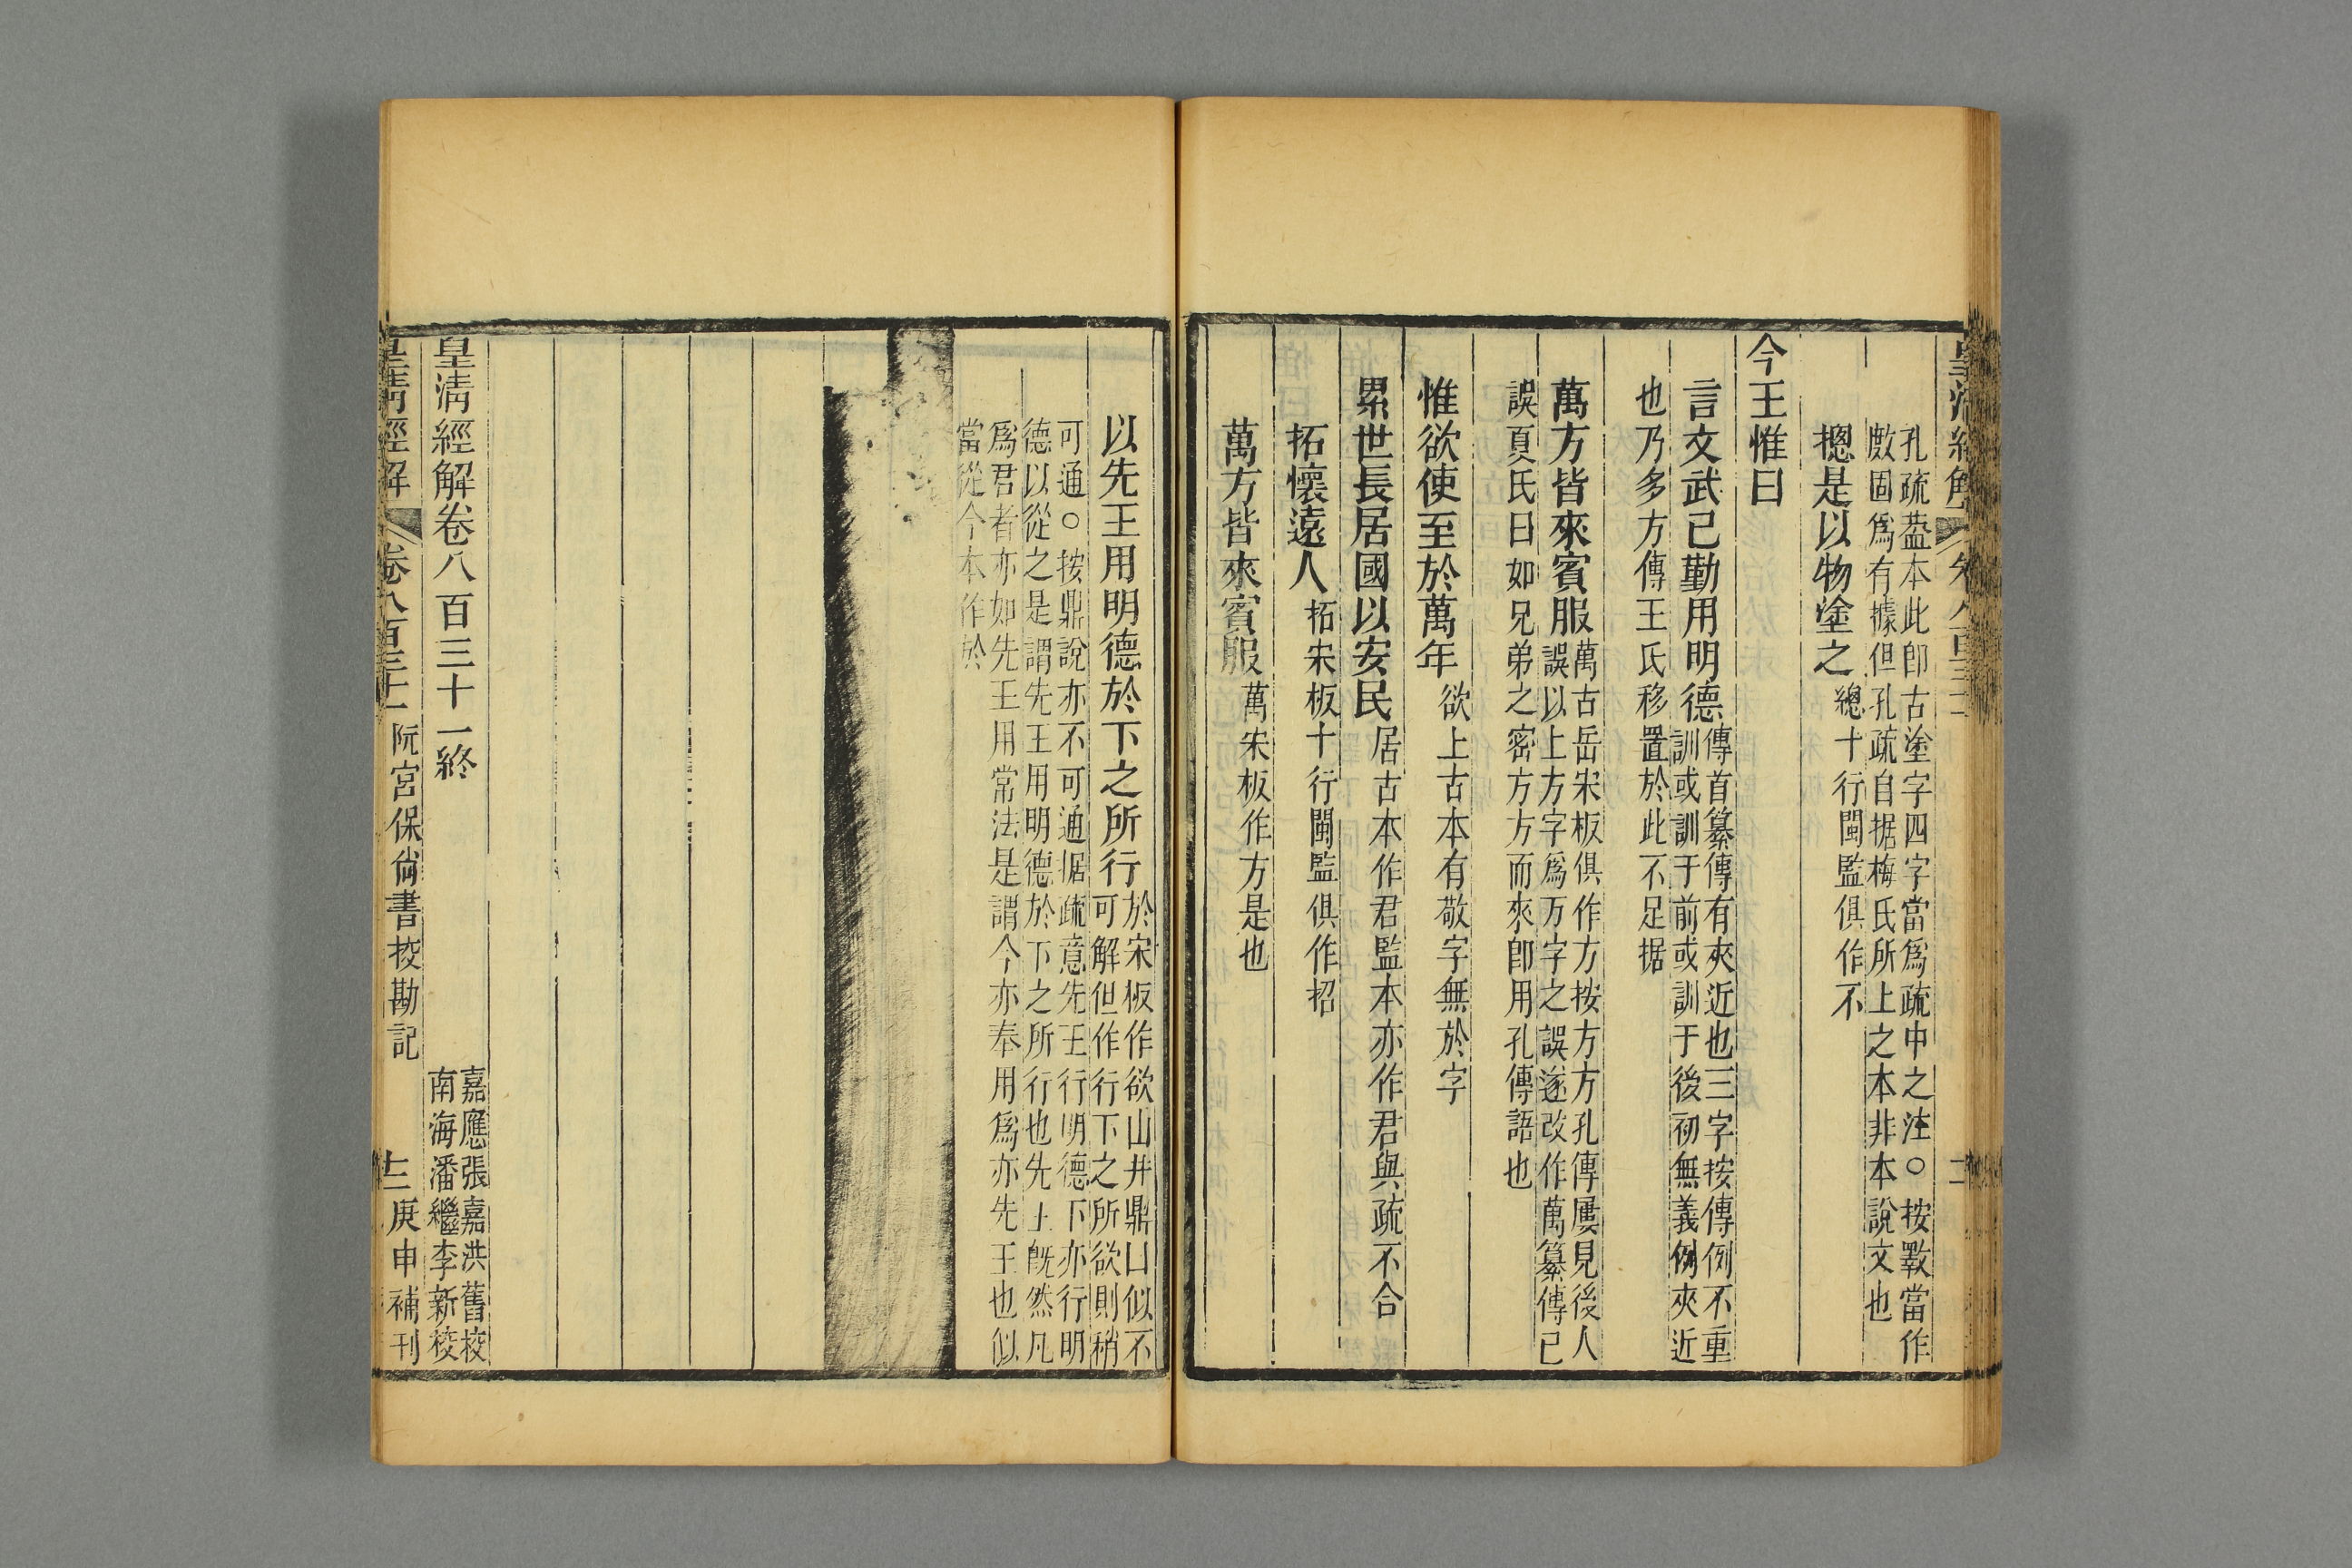 皇清經解 卷八百三十一 十二
孔疏葢本此卽古塗字四字當爲疏中之注○按斁當作
㪟固爲有據但孔疏自据梅氏所上之本非本說文也
摠是以物塗之總十行閩監俱作不
今王惟曰
言文武已勤用明德傳首纂傳有夾近也三字按傳例不重
訓或訓于前或訓于後初無義例夾近
也乃多方傳王氏移置於此不足据
萬方皆來賓服萬古岳宋板俱作方按方方孔傳屢見後人
誤以上方字爲万字之誤遂改作萬纂傳已
誤頁氏曰如兄弟之密方方而來卽用孔傳語也
惟欲使至於萬年欲上古本有敬字無於字
累世長居國以安民居古本作君監本亦作君與疏不合
拓懷遠人拓宋板十行閩監俱作招
萬方皆來賓服萬宋板作方是也
以先王用明德於下之所行於宋板作欲山井鼎曰似不
可解但作行下之所欲則稍
可通○按鼎說亦不可通据疏意先王行明德下亦行明
德以從之是謂先王用明德於下之所行也先王旣然凡
爲君者亦如先王用常法是謂今亦奉用爲亦先王也似
當從今本作於
皇清經解卷八百三十一終
嘉應張嘉洪舊校
南海潘繼李新校
皇清經解 卷八百三十一 阮宮保尙書校勘記 十二 庚申補刊